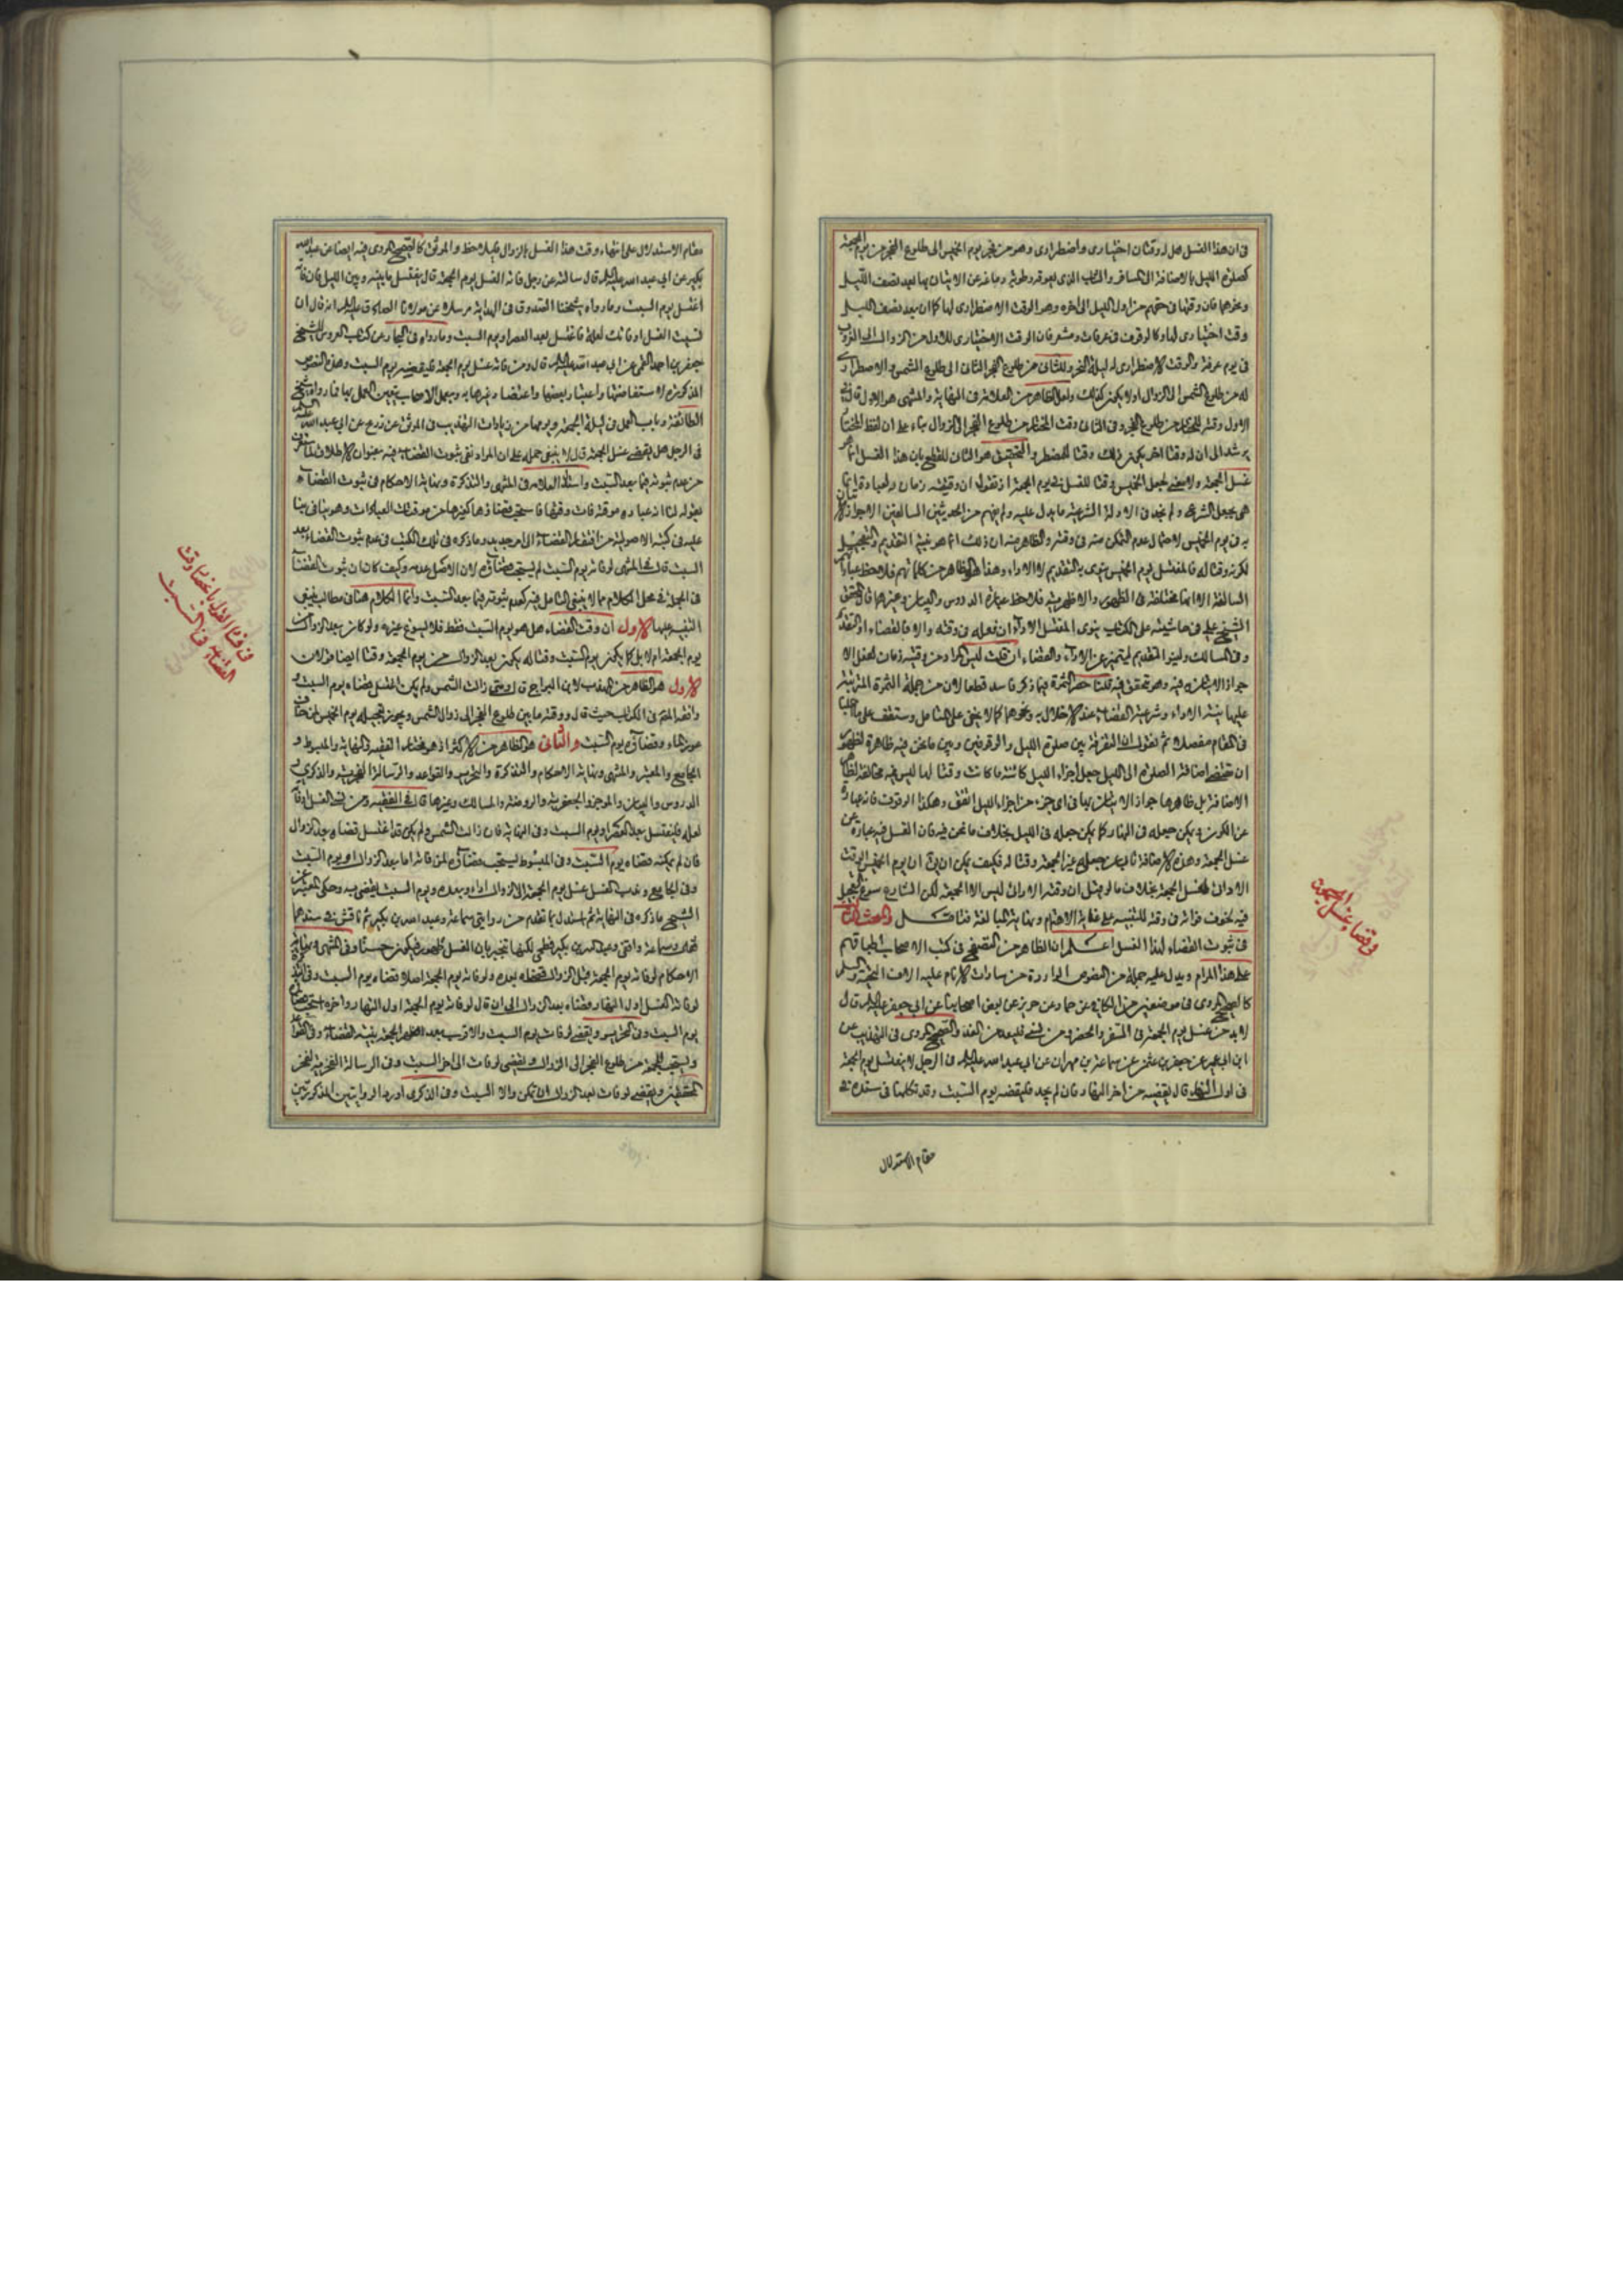 في ان هذا الغسل هل له وقتان اختياري واضطراري وهو من فجر يوم الخميس الى طلوع الفجر من يوم الجمعة
كصلوة الليل بالاضافة الى المسافر والشاب الذي يعوقه رطوبة دماغه عن الاتيان بها بعد نصف الليل
ونحوهما فان وقتها في حقهم من اول الليل الى اخره وهو الوقت الاضطراري لها كما ان بعد نصف الليل
وقت اختياري لها وكالوقوف في عرفات ومشعر فان الوقت الاختياري للاول من الزوال الى الغروب
في يوم عرفة والوقت الاضطراري له ليلة النحر وللثاني من طلوع الفجر الثاني الى طلوع الشمس والاضطراري
له من طلوع الشمس الى الزوال اولا يكون كذلك ولعل الظاهر من العلامة في النهاية والمنتهى هو الاول قال في
الاول وقته للمختار من طلوع الفجر وفي الثاني وقت المختار من طلوع الفجر الى الزوال بناء على ان لفظ المختار
يرشد الى ان له وقتا اخر يكون ذلك وقتا للمضطر والتحقيق هو الثاني للقطع بان هذا الغسل انما هو
غسل الجمعة ولا معنى لجعل الخميس وقتا للغسل في يوم الجمعة اذ نقول ان وقتية زمان لعبادة انما
هي بجعل الشرع ولم نجد في الادلة الشرعية ما يدل عليه ولم يفهم من الحديثين السالفين الا جواز الاتيان
به في يوم الخميس لاحتمال عدم التمكن منه في وقته والظاهر منه ان ذلك انما هو نية التقديم والتعجيل
لكونه وقتا له فالمغتسل يوم الخميس ينوي به التقديم لا الاداء وهذا هو الظاهر من كلماتهم فلاحظ عباراتهم
السالفة الا انها مختلفة في الظهور والاظهرية فلاحظ عبارة الدروس والبيان وغيرهما قال المحقق
الشيخ علي في حاشيته على الكتاب ينوي المغتسل الاداء ان فعله في وقته والا فالقضاء او التقديم
وفي المسالك ولينو التقديم ليتميز عن الاداء والقضاء ان قلت ليس المراد من وقتية زمان لفعل الا
جواز الاتيان به فيه وهو متحقق فيه قلنا حصر الثمرة فيما ذكر فاسد قطعا لان من جملة الثمرة المترتبة
عليها نية الاداء وشرعية القضاء عند الاخلال به ونحوهما كما لا يخفى على المتامل وستقف على ما علينا
في المقام مفصلا ثم نقول ان التفرقة بين صلوة الليل والوقوفين وبين ما نحن فيه ظاهرة لظهور
ان مقتضى اضافة الصلوة الى الليل جعل اجزاء الليل كائنة ما كانت وقتا لها ليس فيه مخالفة لظاهر
الاضافة بل ظاهرها جواز الاتيان بها في اي جزء من اجزاء الليل اتفق وهكذا الوقوف فانه عبارة
عن الكون فيمكن جعله في النهار كما يمكن جعله في الليل بخلاف ما نحن فيه فان الغسل فيه عبارة عن
غسل الجمعة وهذه الاضافة تابى عن جعل غير الجمعة وقتا له فكيف يمكن ان يق ان يوم الخميس الوقت
الاداني لغسل الجمعة بخلاف ما لو قيل ان وقته الاداني ليس الا الجمعة لكن الشارع سوغ التعجيل
فيه لخوف فواته في وقته للتنبيه على غاية الاهتمام ونهاية المبالغة فتامل والمبحث الثالث
في ثبوت القضاء لهذا الغسل اعلم ان الظاهر من التصفح في كتب الاصحاب اطباقهم
على هذا المرام ويدل عليه جملة من النصوص الواردة من سادات الانام عليهم الاف التحية والسلم
كالصحيح المروي في موضعين من الكافي عن حماد عن حريز عن بعض اصحابنا عن ابي جعفر عليه السلام قال
لابد من غسل يوم الجمعة في السفر والحضر ومن نسي فليعد من الغد والصحيح المروي في التهذيب عن
ابن ابي عمير عن جعفر بن عثمن عن سماعة بن مهران عن ابي عبد الله عليه السلام في الرجل لا يغتسل يوم الجمعة
في اول النهار قال يقضيه من اخر النهار فان لم يجد فليقضه يوم السبت وقد تكلمنا في سنده في
مقام الاستدلال
وقضاء غسل الجمعة
مقام الاستدلال على انتهاء وقت هذا الغسل بالزوال فليلاحظ والموثق كالصحيح المروي فيه ايضا عن عبد الله
بكير عن ابي عبد الله عليه السلام قال سالته عن رجل فاته الغسل يوم الجمعة قال يغتسل ما بينه وبين الليل فان فاته
اغتسل يوم السبت وما رواه شيخنا الصدوق في الهداية مرسلا عن مولانا الصادق عليه السلام انه قال ان
نسيت الغسل او فاتك لعلة فاغتسل بعد العصر او يوم السبت وما رواه في البحار عن كتاب العروس للشيخ
جعفر بن احمد القمي عن ابي عبد الله عليه السلام قال ومن فاته غسل يوم الجمعة فليقضه يوم السبت وهذه النصوص
المذكورة لاستفاضتها واعتبار بعضها واعتضاد غيرها به وبعمل الاصحاب يتعين العمل بها فما رواه شيخ
الطائفة في باب العمل في ليلة الجمعة ويومها من زيادات التهذيب في الموثق عن ذريح عن ابي عبد الله عليه السلم
في الرجل هل يقضي غسل الجمعة قال لا ينبغي حمله على ان المراد نفي ثبوت القضاء فيه بعنوان الاطلاق لما ستعرف
من عدم ثبوته فيما بعد السبت واستدل العلامة في المنتهى والتذكرة ونهاية الاحكام في ثبوت القضاء
بقوله لنا انه عبادة موقتة فات وقتها فاستحب قضاؤها كغيرها من موقتات العبادات وهو ينافي بناؤه
عليه في كتبه الاصولية من افتقار القضاء الى امر جديد وما ذكره في تلك الكتب في عدم ثبوت القضاء بعد
السبت قال في المنتهى لو فاته يوم السبت لم يستحب قضاؤه لان الاصل عدمه وكيف كان ان ثبوت القضاء
في الجملة في محل الكلام مما لا ينبغي التامل فيه كعدم ثبوته فيما بعد السبت وانما الكلام هنا في مطالب ينبغي
التنبيه عليها الاول ان وقت القضاء هل هو يوم السبت فقط فلا يسوغ غيره ولو كان بعد الزوال من
يوم الجمعة ام لا بل كما يكون يوم السبت وقتا له يكون بعد الزوال من يوم الجمعة وقتا ايضا فالان
الاول هو الظاهر من المهذب لابن البراج قال ومتى زالت الشمس ولم يكن اغتسل قضاه يوم السبت و
وافقه المص في الكتاب حيث قال ووقته ما بين طلوع الفجر الى زوال الشمس ويجوز تعجيله يوم الخميس لمن خاف
عوز الماء وقضاؤه يوم السبت والثاني هو الظاهر من الاكثر اذ هو مقتضى الفقيه والنهاية والمبسوط و
الجامع والمعتبر والمنتهى ونهاية الاحكام والتذكرة والتحرير والقواعد والرسالة الفخرية والذكرى و
الدروس والبيان والموجز والجعفرية والروضة والمسالك وغيرها قال في الفقيه ومن نسي الغسل او فاته
لعلة فليغتسل بعد العصر او يوم السبت وفي النهاية فان زالت الشمس ولم يكن قد اغتسل قضاه بعد الزوال
فان لم يمكنه قضاه يوم السبت وفي المبسوط يستحب قضاؤه لمن فاته اما بعد الزوال او يوم السبت
وفي الجامع وندب الغسل غسل يوم الجمعة الى الزوال اداء وبعده ويوم السبت يقضى به وحكى المعتبر عن
الشيخ ما ذكره في النهاية ثم استدل بما تقدم من روايتي سماعة وعبد الله بن بكير ثم ناقش في سندهما
الاحكام لو فاته يوم الجمعة قبل الزوال قضاه بعده ولو فاته يوم الجمعة اصلا قضاه يوم السبت وفي التذكرة
لو فاته الغسل اول النهار قضاه بعد الزوال الى ان قال لو فاته يوم الجمعة اول النهار واخره استحب قضاؤه
يوم السبت وفي التحرير ويقضى لو فات يوم السبت والاقرب بعد الظهر الجمعة بنية القضاء وفي القواعد
ويستحب للجمعة من طلوع الفجر الى الزوال ويقضى لو فات الى اخر السبت وفي الرسالة الفخرية لفخر
المحققين ويقضى لو فات بعد الزوال ان تمكن والا السبت وفي الذكرى اورد الروايتين المذكورتين